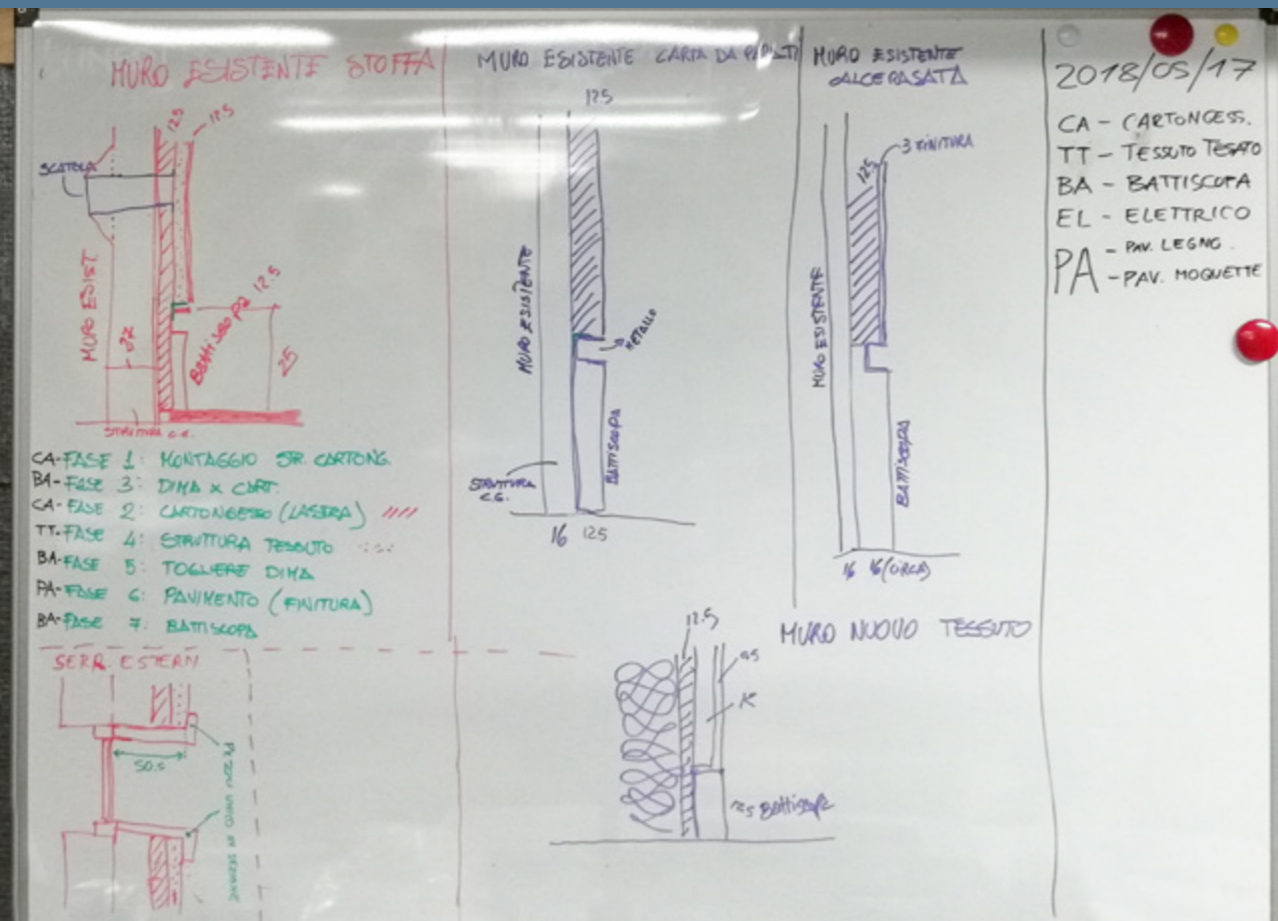 MURO ESISTENTE STOFFA
12.5
12.5
SCATOLA
MURO ESIST.
BATTISCOPA
12.5
25
STRUTTURA C.G.
CA-FASE 1: MONTAGGIO STR. CARTONG.
BA-FASE 3: DIMA x CART.
CA-FASE 2: CARTONGESSO (LASTRA)
TT-FASE 4: STRUTTURA TESSUTO
BA-FASE 5: TOGLIERE DIMA
PA-FASE 6: PAVIMENTO (FINITURA)
BA-FASE 7: BATTISCOPA
SERR. ESTERNI
50.5
PEZZO UNICO IN
MURO ESISTENTE CARTA DA PARATI
125
MURO ESISTENTE
METALLO
BATTISCOPA
STRUTTURA
C.G.
16 125
MURO ESISTENTE
CALCE RASATA
3 FINITURA
125
MURO ESISTENTE
BATTISCOPA
16 16 (CIRCA)
MURO NUOVO TESSUTO
12.5
Battiscopa
2018/05/17
CA - CARTONGESS.
TT - TESSUTO TESATO
BA - BATTISCOPA
EL - ELETTRICO
PA - PAV. LEGNO.
- PAV. MOQUETTE